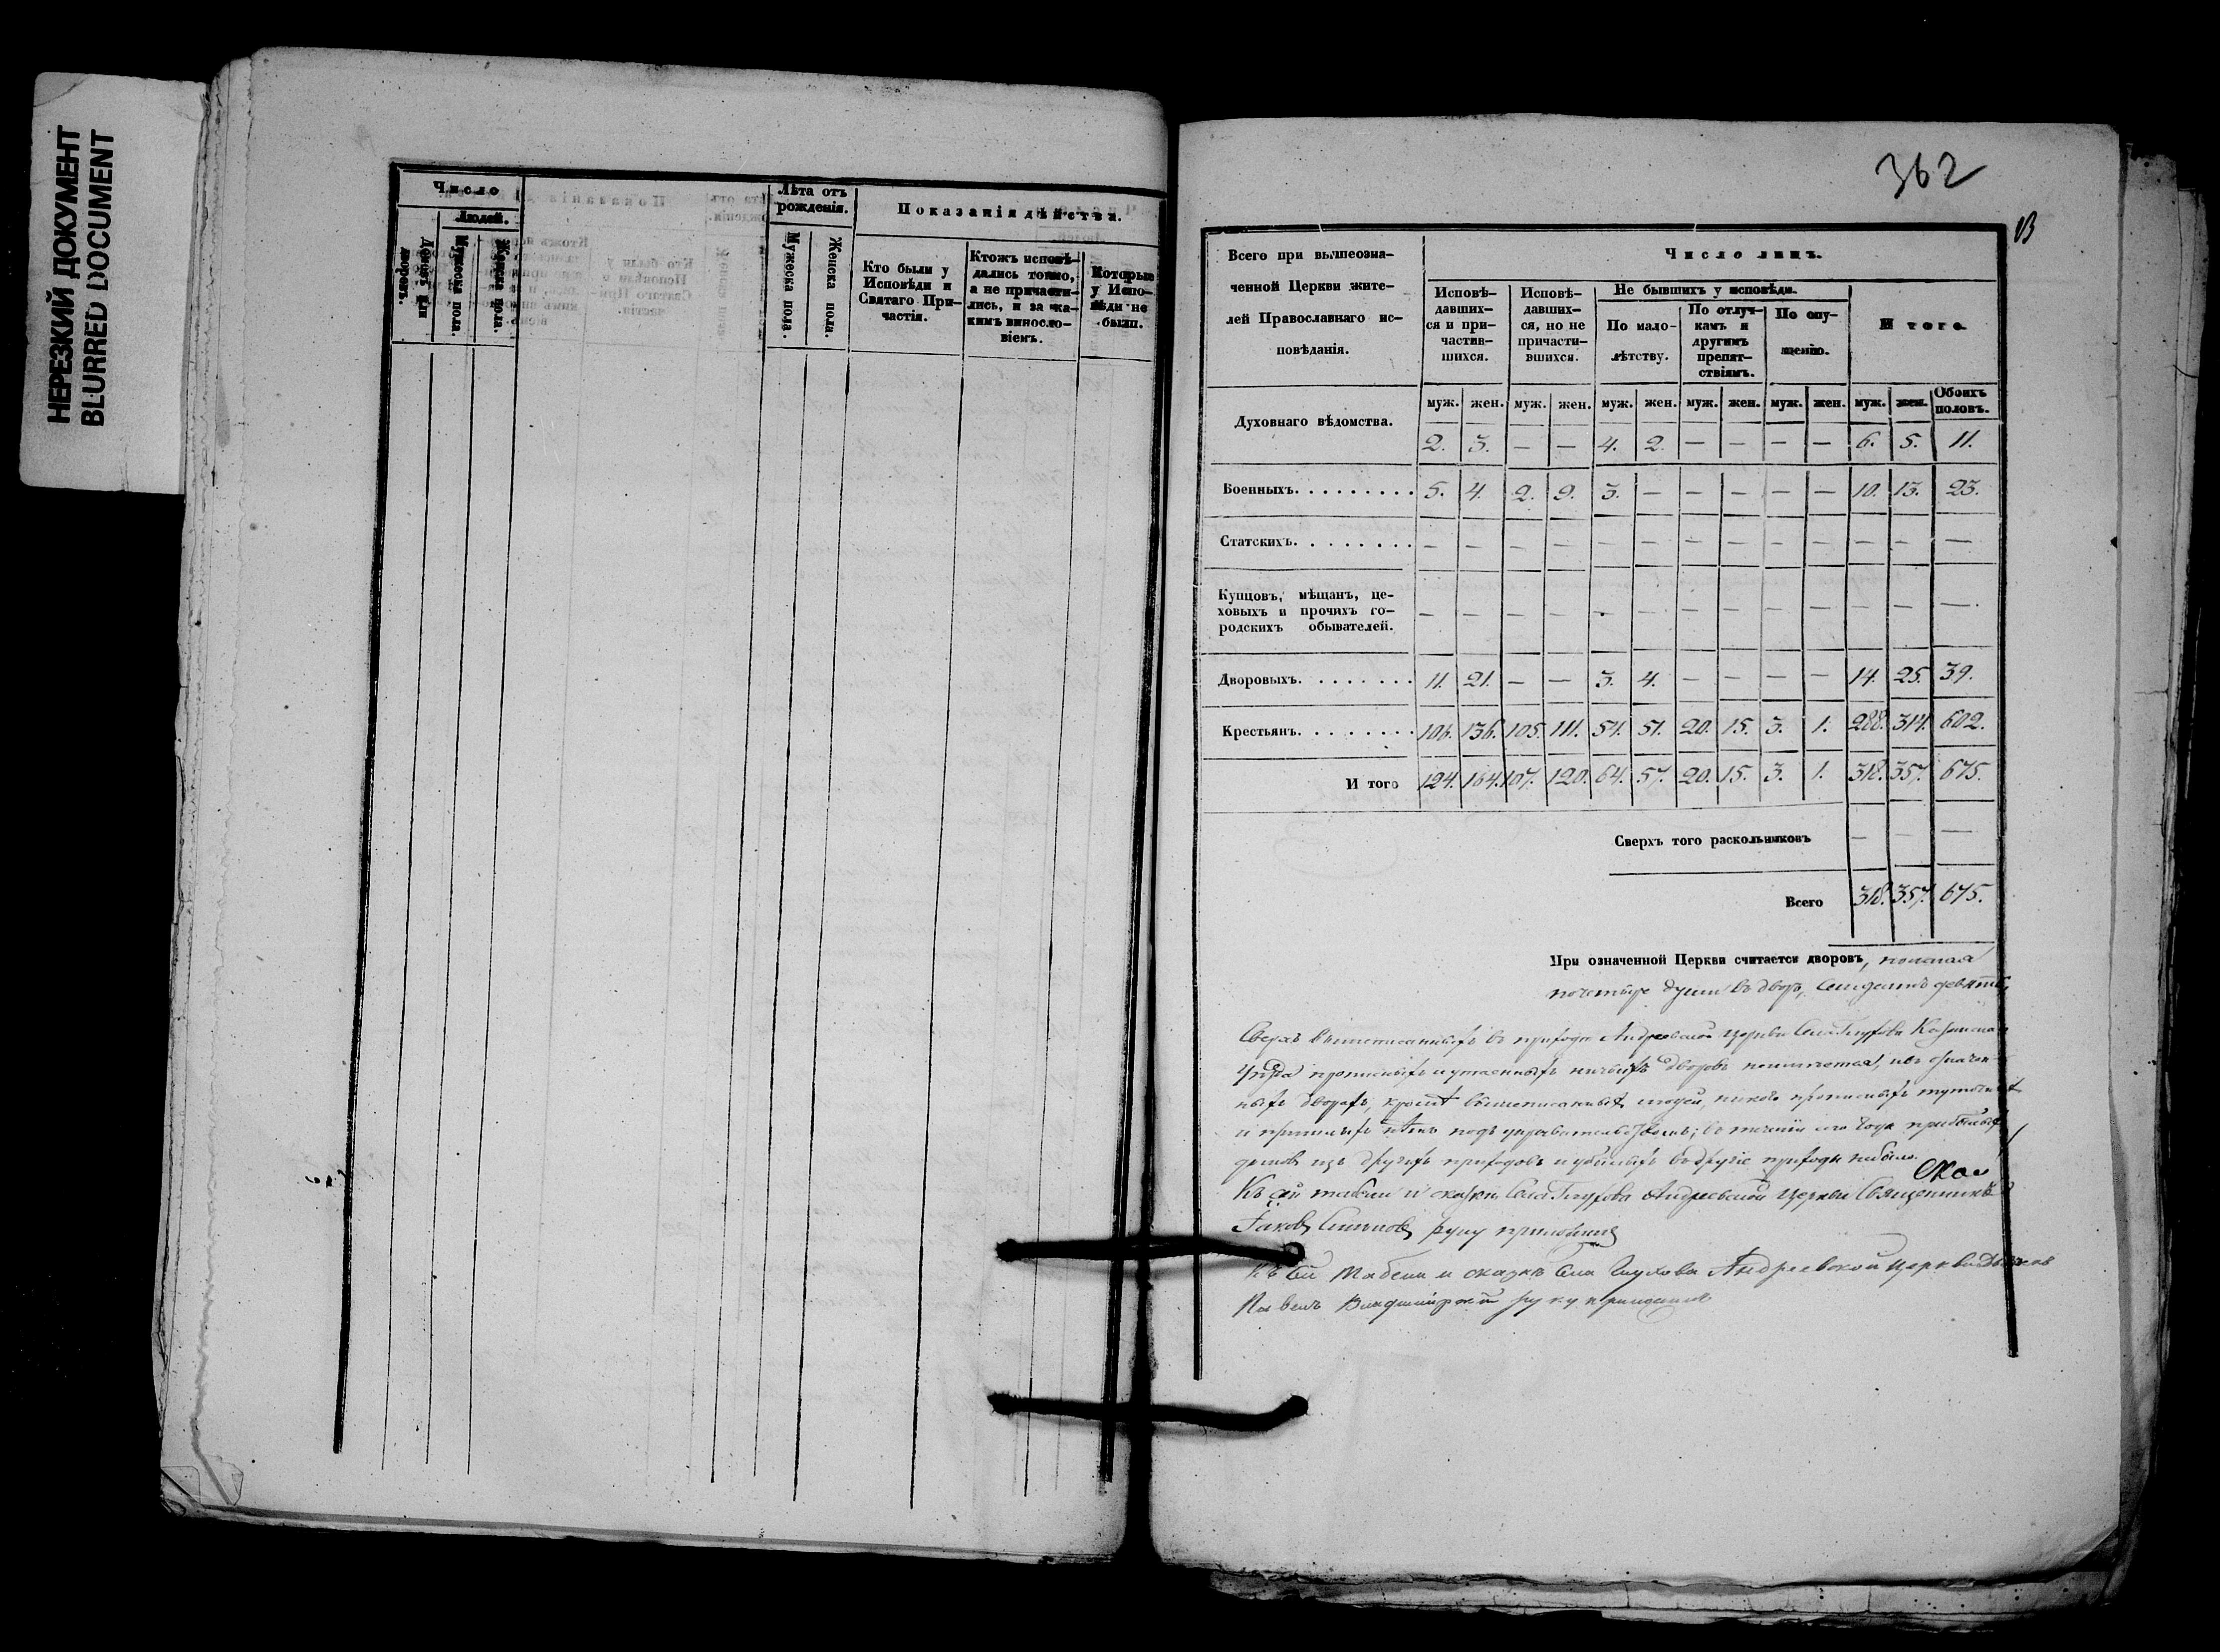 НЕРЕЗКИЙ ДОКУМЕНТ
BLURRED DOCUMENT
Число
Людей.
Домовъ или дворовъ.
Мужеска пола.
Женска пола.
Лѣта отъ рожденія.
Мужеска пола.
Женска пола.
Показанія дѣйства.
Кто были у Исповѣди и Святаго Причастія.
Ктожъ исповѣдались токмо, а не причастились, и за какимъ винословіемъ.
Которые у Исповѣди не были.
362
Всего при вышеозна-
ченной Церкви жите-
лей Православнаго ис-
повѣданія.
Число лицъ.
Исповѣ-
давших-
ся и при-
частив-
шихся.
Исповѣ-
давших-
ся, но не
причасти-
вшихся.
Не бывшихъ у исповѣди.
По мало-
лѣтству.
По отлуч-
камъ и
другимъ
препят-
ствіямъ.
По опу-
щенію.
Итого.
муж. жен. муж. жен. муж. жен. муж. жен. муж. жен. муж. жен. Обоихъ половъ.
Духовнаго вѣдомства. 2. 3. — — 4. 2. — — — — 6. 5. 11.
Военныхъ. . . . . . . . . 5. 4. 2. 9. 3. — — — — — 10. 13. 23.
Статскихъ. . . . . . . . . — — — — — — — — — — — — —
Купцовъ, мѣщанъ, це-
ховыхъ и прочихъ го-
родскихъ обывателей. — — — — — — — — — — — — —
Дворовыхъ. . . . . . . . 11. 21. — — 3. 4. — — — — 14. 25. 39.
Крестьянъ. . . . . . . . 106. 136. 105. 111. 54. 51. 20. 15. 3. 1. 288. 314. 602.
И того 124. 164. 107. 120. 64. 57. 20. 15. 3. 1. 318. 357. 675.
Сверхъ того раскольниковъ — — —
Всего 318. 357. 675.
При означенной Церкви считается дворовъ, полагая
по четыре души въ дворъ, семдесятъ девять.
Сверхъ вышеписанныхъ въ приходѣ Андреевской церкви Села Глухова
уѣзда прописныхъ и утаенныхъ ничьихъ дворовъ неимѣется, и въ означен-
ныхъ дворахъ, кромѣ вышеписанныхъ людей, никого прописныхъ
и пришлыхъ нѣтъ подъ въ теченіи сего года прибылыхъ
домовъ изъ другихъ приходовъ и убылыхъ въ другіе приходы небыло.
Къ сей табели и сказкѣ Села Глухова Андреевской церкви Священникъ
Іаковъ руку приложилъ
Къ сей табели и сказкѣ села Глухова Андреевской церкви
Павелъ руку приложилъ